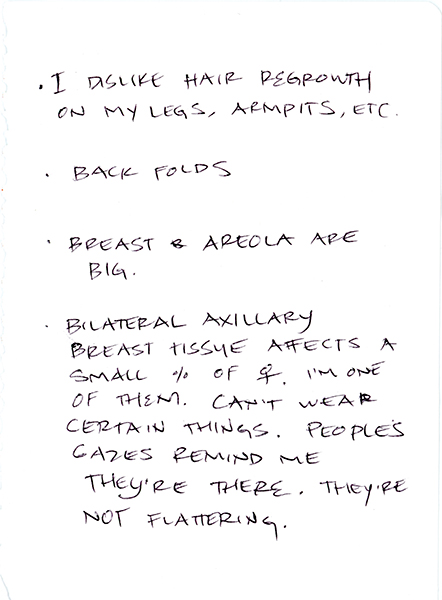 · I DISLIKE HAIR REGROWTH
ON MY LEGS, ARMPITS, ETC.
· BACK FOLDS
· BREAST & AREOLA ARE
BIG.
· BILATERAL AXILLARY
BREAST TISSUE AFFECTS A
SMALL % OF ♀. I'M ONE
OF THEM. CAN'T WEAR
CERTAIN THINGS. PEOPLE'S
GAZES REMIND ME
THEY'RE THERE. THEY'RE
NOT FLATTERING.